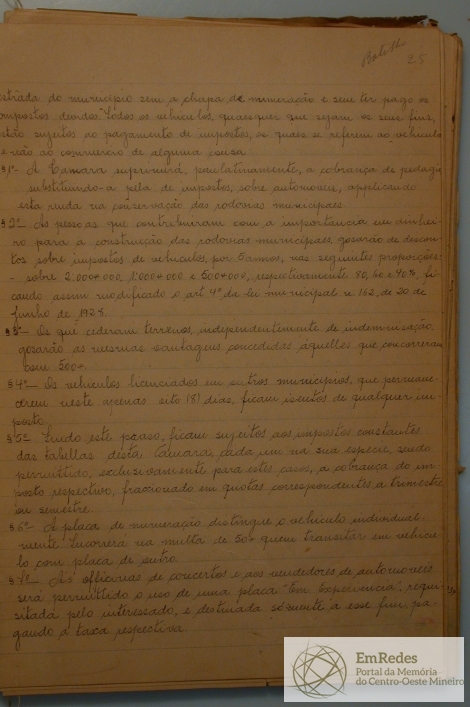 25
estrada do municipio sem a chapa de numeração e sem ter pago os
impostos devidos. Todos os vehiculos, quaesquer que sejam os seus fins,
estão sujeitos ao pagamento de impostos, os quaes se referem ao vehiculo
e não ao commercio de alguma cousa.
§ 1º - A Camara supprimirá, paulatinamente, a cobrança de pedagio
substituindo-a pela de impostos, sobre automoveis, applicando
esta renda na conservação das rodovias municipaes.
§ 2º - As pessoas que contribuiram com a importancia em dinhei-
ro para a construcção das rodovias municipaes gosarão de descon-
tos sobre impostos de vehiculos, por annos, nas seguintes proporções:
- sobre 2:000$000, 1:000$000 e 500$000, respectivamente 80, 60 e 40%, fi-
cando assim modificado o art. 4º da lei municipal n. 162, de 30 de
junho de 1928.
§ 3º - Os que cederam terrenos, independentemente de indemnisação,
gosarão as mesmas vantagens concedidas áquelles que concorreram
com 500$.
§ 4º - Os vehiculos licenciados em outros municipios, que permane-
cerem neste apenas oito (8) dias, ficam isentos de qualquer im-
posto.
§ 5º - Findo este praso, ficam sujeitos aos impostos constantes
das tabellas desta Camara, cada um na sua especie, sendo
permittido, exclusivamente para estes casos, a cobrança do im-
posto respectivo, fraccionado em quotas correspondentes a trimestre
ou semestre.
§ 6º - A placa de numeração distingue o vehiculo individual-
mente. Incorrerá na multa de 50$ quem transitar em vehicu-
lo com placa de outro.
§ 7º - As officinas de concertos e aos vendedores de automoveis
será permittido o uso de uma placa "Em Experiencia", requi-
sitada pelo interessado, e destinada sómente a esse fim, pa-
gando a taxa respectiva.
EmRedes
Portal da Memória
do Centro-Oeste Mineiro